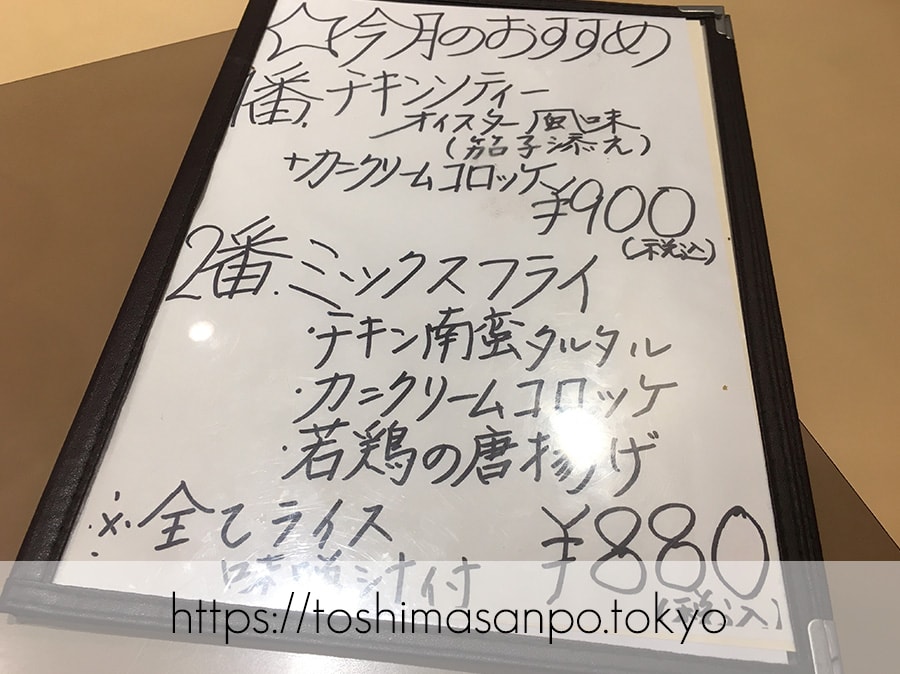 ☆今月のおすすめ
1番.チキンソティー
オイスター風味
(茄子添え)
+カニクリームコロッケ
¥900
(税込)
2番.ミックスフライ
・チキン南蛮タルタル
・カニクリームコロッケ
・若鶏の唐揚げ
※全てライス
味噌汁付
¥880
(税込)
https://toshimasanpo.tokyo